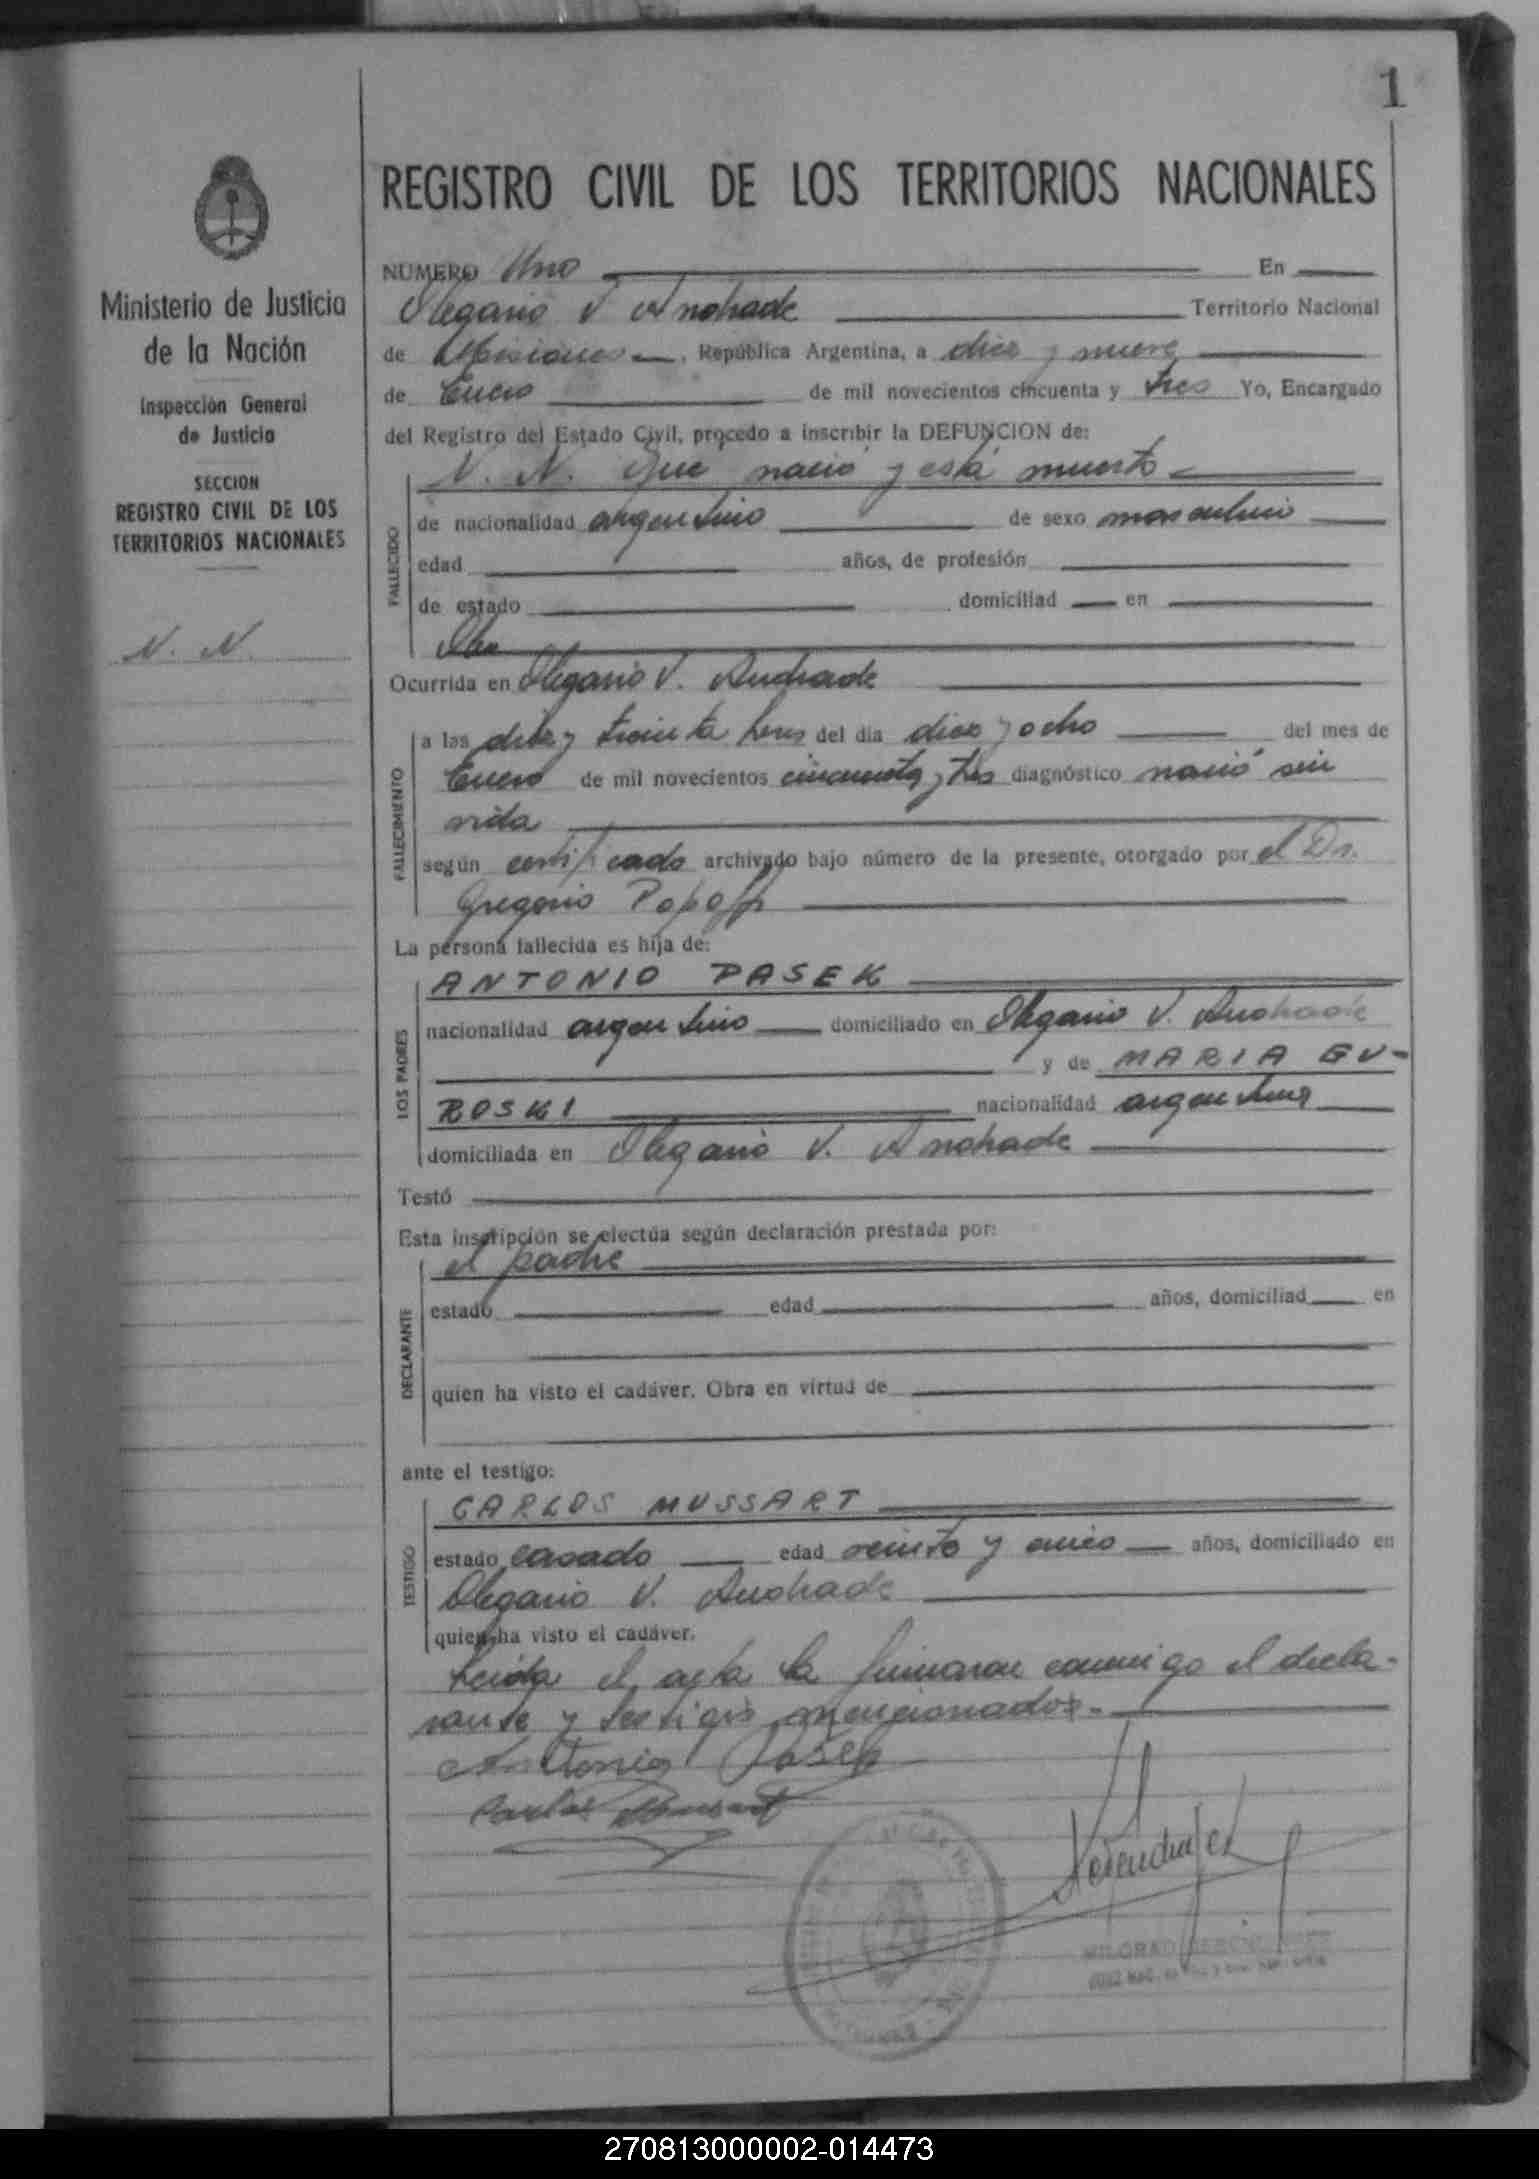 1
REGISTRO CIVIL DE LOS TERRITORIOS NACIONALES
Ministerio de Justicia
de la Nación
Inspección General
de Justicia
SECCION
REGISTRO CIVIL DE LOS
TERRITORIOS NACIONALES
N. N.
NUMERO Uno En
Olegario V Andrade Territorio Nacional
de Misiones, República Argentina, a diez y nueve
de Enero de mil novecientos cincuenta y tres Yo, Encargado
del Registro del Estado Civil, procedo a inscribir la DEFUNCION de:
N. N. que nació y está muerto
FALLECIDO
de nacionalidad argentino de sexo masculino
edad años, de profesión
de estado domiciliad en
Ocurrida en Olegario V. Andrade
FALLECIMIENTO
a las diez y treinta horas del día diez y ocho del mes de
Enero de mil novecientos cincuenta y tres diagnóstico nació sin
vida
según certificado archivado bajo número de la presente, otorgado por el Dr.
Gregorio Popoff
La persona fallecida es hija de:
LOS PADRES
ANTONIO PASEK
nacionalidad argentino domiciliado en Olegario V. Andrade
y de MARIA GU-
ROSKI nacionalidad argentina
domiciliada en Olegario V. Andrade
Testó
Esta inscripción se efectúa según declaración prestada por:
DECLARANTE
el padre
estado edad años, domiciliad en
quien ha visto el cadáver. Obra en virtud de
ante el testigo:
TESTIGO
CARLOS MUSSART
estado casado edad veinte y cinco años, domiciliado en
Olegario V. Andrade
quien ha visto el cadáver.
Leída el acta la firmaron conmigo el decla-
rante y testigos mencionados.-
Antonio Pasek
Carlos Mussart
MILORAD
270813000002-014473